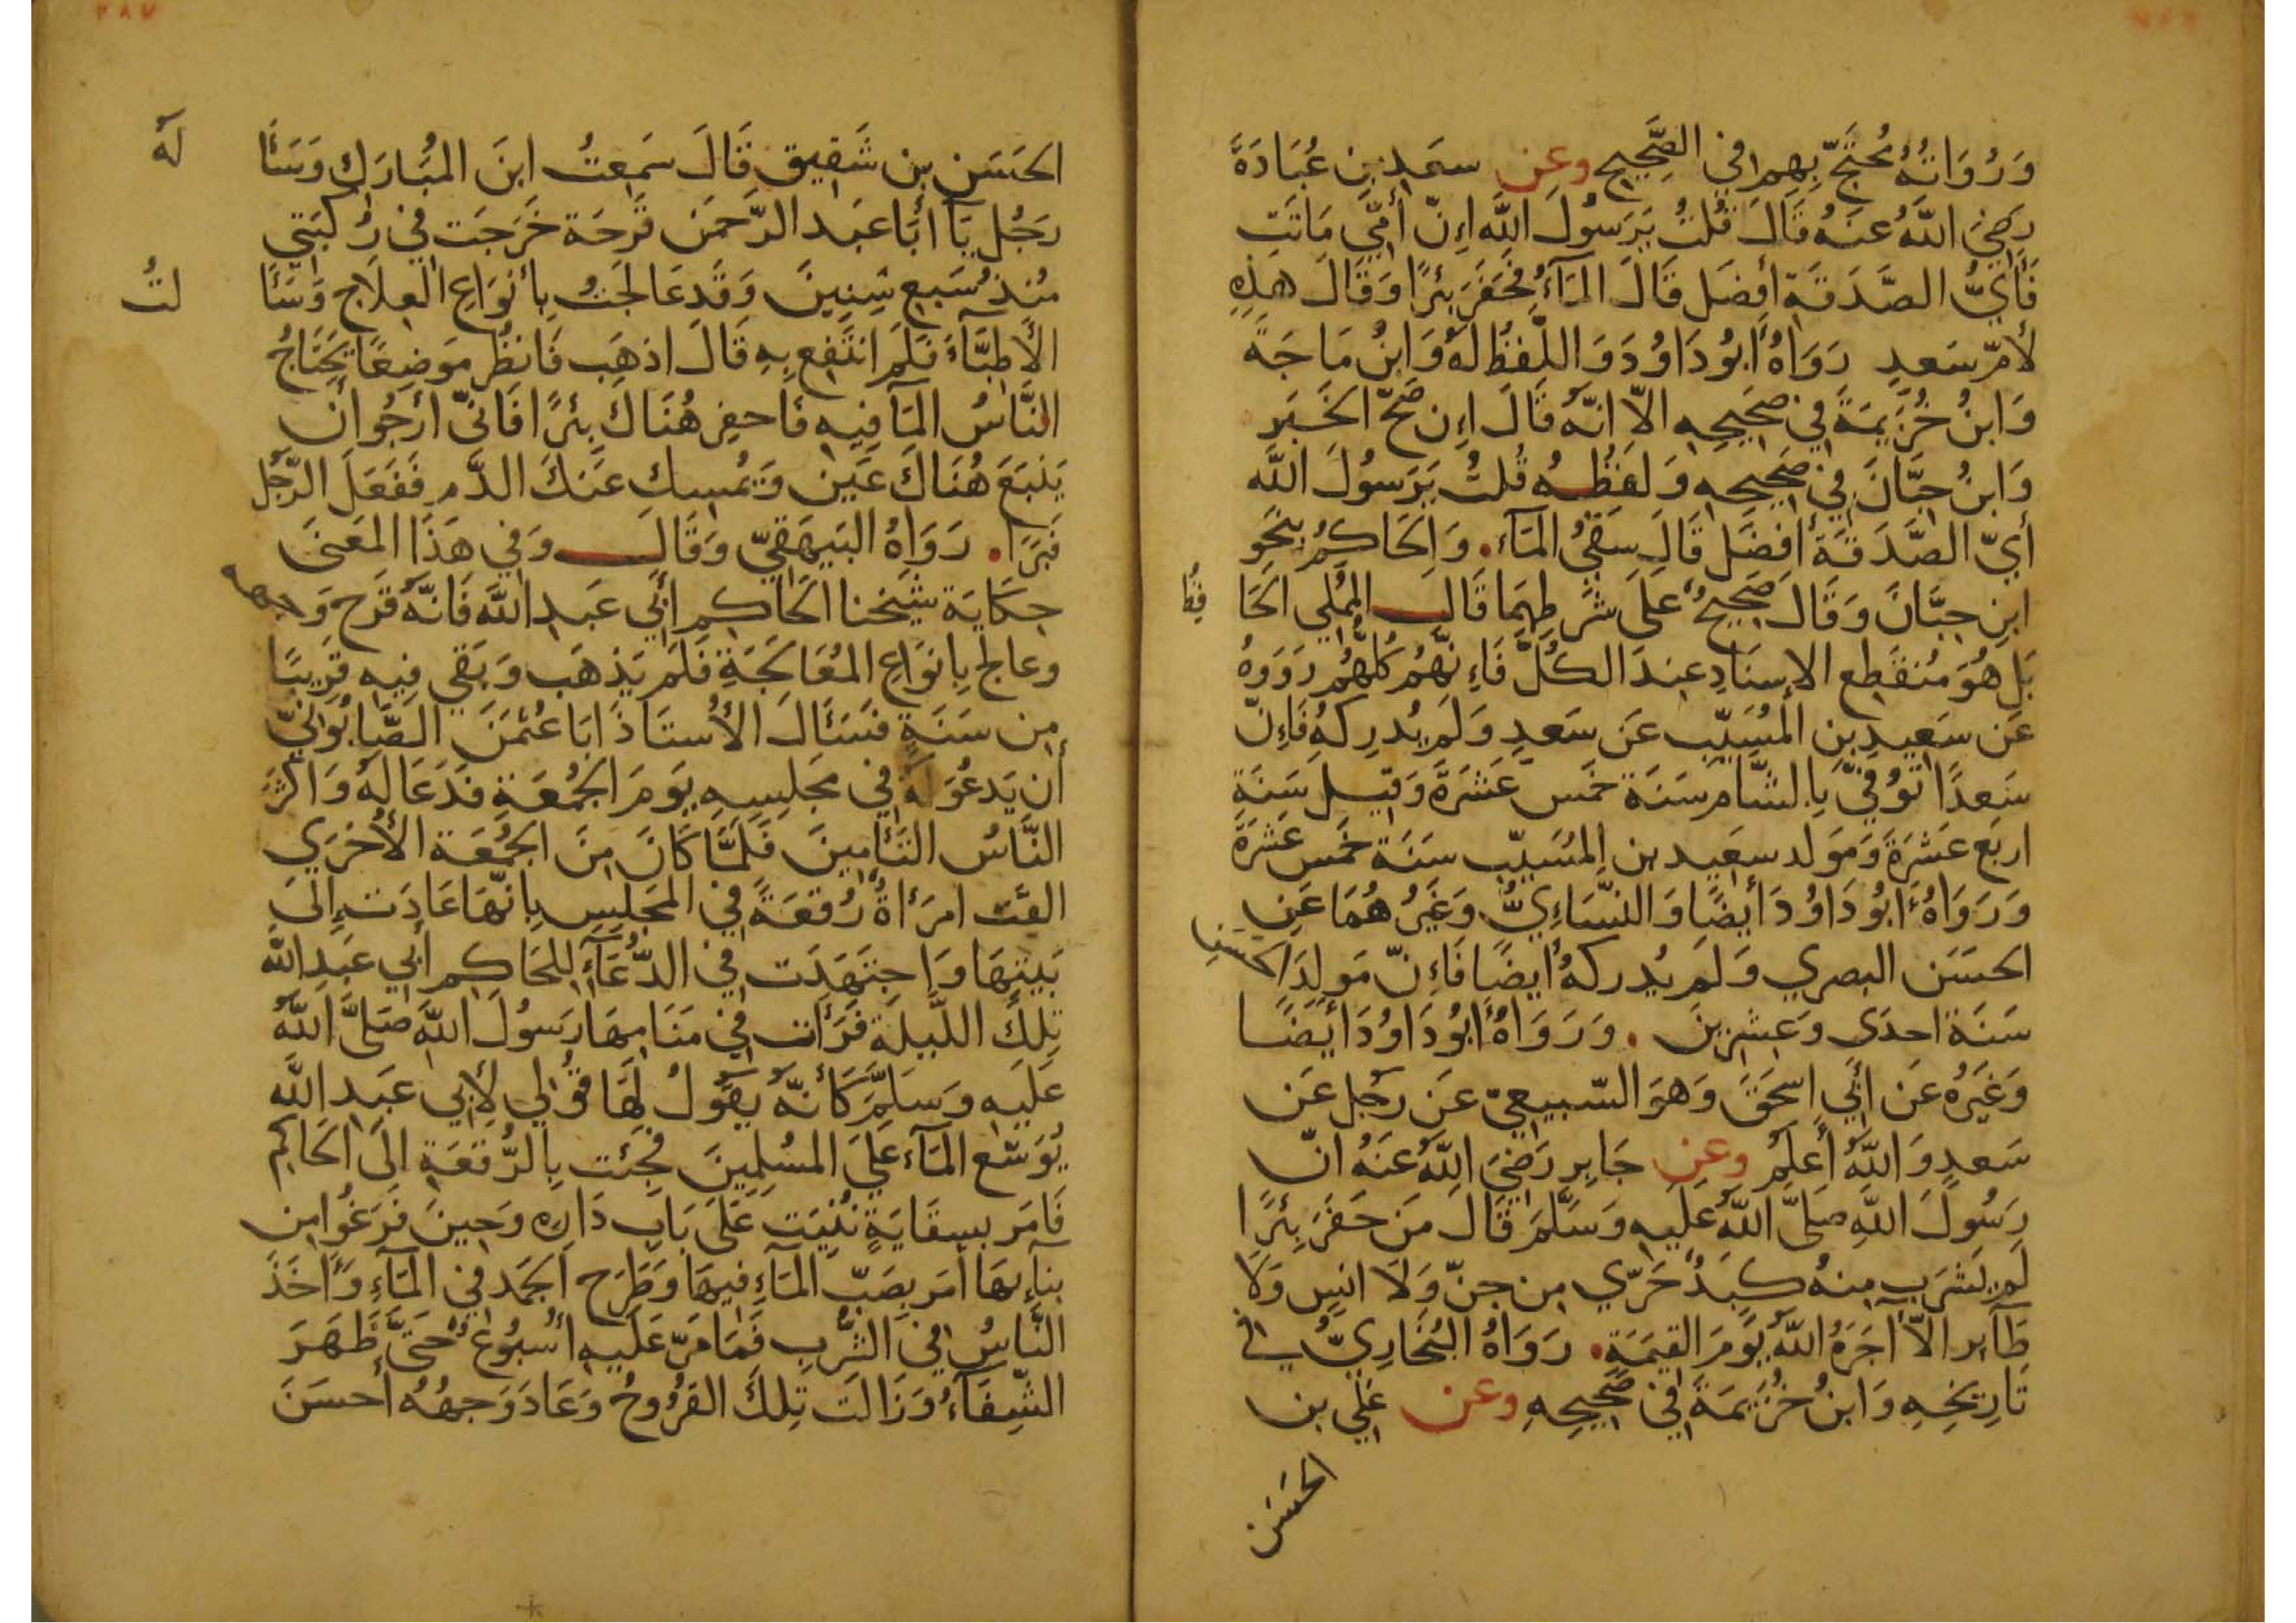 وَرُوَاتُهُ مُحْتَجٌّ بِهِم فِي الصَّحِيحِ وعن سعد بنِ عُبَادَةَ
رَضِيَ اللَّهُ عَنهُ قَالَ قُلتُ يَرَسُولَ اللَّهِ إِنَّ أُمِّي مَاتَت
فَأَيُّ الصَّدَقَةِ أَفضَل قَالَ المَآءُ فَحَفَرَ بِئرًا وَقَالَ هذِهِ
لأُمِّ سَعدٍ رَوَاهُ أَبُو دَاوُدَ وَاللَّفظُ لَهُ وَابنُ مَاجَة
وَابنُ خُزَيمَةَ فِي صَحِيحِهِ الاّ انَّهُ قَالَ اِن صَحَّ الخَبَر
وَابنُ حِبَّانَ فِي صَحِيحِهِ وَلَفظُهُ قُلتُ يَرَسُولَ اللَّه
أَيّ الصَّدَقَةِ أَفضَل قَالَ سَقيُ المَآء. وَالحَاكِمُ بِنَحوِ
ابنِ حِبَّانَ وَقَالَ صَحِيحٌ عَلَى شَرطِهِمَا قَالَ المُملِي الحَا
فِظُ
بَل هُوَ مُنقَطِع الاِسنَادِ عِندَ الكُلِّ فَإِنَّهُم كُلُّهُم رَوَوهُ
عَن سَعِيدِ بنِ المُسَيّب عَن سَعدٍ وَلَم يُدرِكهُ فَإِنّ
سَعدًا تُوُفِّيَ بِالشَّام سَنَة خَمسَ عَشرَةَ وَقِيلَ سَنَةِ
اربَع عَشرَةَ وَمَولد سعِيد بن المُسَيّب سَنَة خَمسَ عَشرَةَ
وَرَوَاهُ أَبُو دَاوُدَ أَيضًا وَالنَّسَاءِيُّ وَغَيرُهُمَا عَنِ
الحَسَن البصري وَلَم يُدركهُ أَيضًا فَإِنّ مَولِدَ الحَسَنِ
سَنَة احدَى وَعِشرِينَ. وَرَوَاهُ أَبُو دَاوُدَ أَيضًا
وَغَيرُهُ عَن أَبِي اسحَقَ وَهوَ السّبِيعِيّ عَن رَجُل عَن
سَعدٍ وَاللَّهُ أَعلَم وعن جَابِرٍ رَضِيَ اللَّهُ عَنهُ انّ
رَسُولَ اللَّهِ صَلَّى اللَّهُ عَلَيهِ وَسَلَّمَ قَالَ مَن حَفَرَ بِئرًا
لَم يَشرَب مِنهُ كَبِدٌ حَرّي مِن جِنّ وَلَا انسٍ وَلَا
طَآئر الاّ آجَرَهُ اللَّهُ يَومَ القِيمَةِ. رَوَاهُ البُخَارِيُّ في
تَارِيخِهِ وَابنُ خُزَيمَةَ فِي صَحِيحِهِ وعن عَلِي بن
الحَسَن
الحَسَنِ بنِ شَقِيقٍ قَالَ سَمِعتُ ابنَ المُبَارَكِ وَسَئَا
لَهُ
رَجُل يَآ أَبَا عَبد الرَّحمَن قَرحَة خَرَجَت فِي رُكبَتِي
مُنذُ سَبعِ سِنِينَ وَقَد عَالَجتُ بِأَنوَاعِ العِلَاج وَسَئَا
لتُ
الأَطِبَّآءَ فَلَم انتَفِع بِهِ قَالَ اذهَب فَانظُر مَوضِعًا يَحتَاجُ
النَّاسُ المَآ فِيهِ فَاحفِر هُنَاكَ بِئرًا فَانّي أَرجُو أَن
يَنبَعَ هُنَاكَ عَين وَيُمسِك عَنكَ الدَّم فَفَعَلَ الرَّجُل
فَبَرَا. رَوَاهُ البَيهَقِيّ وَقَالَ وَفِي هَذَا المَعنَى
حِكَايَة شَيخنا الحَاكِم أَبِي عَبدِ اللَّه فَانَّهُ قَرحَ وَجهه
وعالج بِانوَاعِ المُعَالَجَةِ فَلَم يَذهَب وَبَقي فِيهِ قَرِيبًا
مِن سَنَةٍ فَسَئَالَ الأُستَاذَ ابَا عُثمَنَ الصَّابُونِيّ
أَن يَدعُوَ لَهُ فِي مَجلِسِهِ يَومَ الجُمُعَةِ فَدَعَا لَهُ وَاكثَرَ
النَّاسُ التَّامِينَ فَلَمَّا كَانَ مِنَ الجُمُعَة الأُخرَي
القَت امرَأَةٌ رُقعَةً فِي المَجلِسِ بِانّهَا عَادَت إِلَى
بَيتِهَا وَاجتَهَدَت فِي الدُّعَآءِ لِلحَاكِم أَبِي عَبدِ اللَّه
تِلكَ اللَّيلَةَ فَرَأَت فِي مَنَامِهَا رَسُولَ اللَّهِ صَلَّى اللَّهُ
عَلَيهِ وَسَلَّمَ كَأَنَّهُ يَقُولُ لَهَا قُولي لِأَبِي عَبدِ اللَّه
يُوَسِّع المَآءَ عَلَى المُسلِمِينَ فَجِئت بِالرُّقعَةِ الَى الحَاكِم
فَامَر بِسِقَايَةٍ بُنِيَت عَلَى بَابِ دَارِه وَحِينَ فَرَغُوا مِن
بنآئهَا أَمَر بِصَبّ المَآءِ فِيهَا وَطَرح الجَمَد فِي المَآءِ وَأَخَذَ
النَّاسُ فِي الشُّربِ فَمَا مَرّ عَلَيهِ أُسبُوعٌ حَتَّى ظَهَرَ
الشِّفَآءُ وَزَالَت تِلكَ القُرُوحُ وَعَادَ وَجهُهُ أَحسَنَ